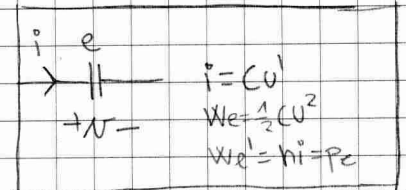 i e
+ u −
i = Cu'
We = ½ Cu²
We' = ui = Pe